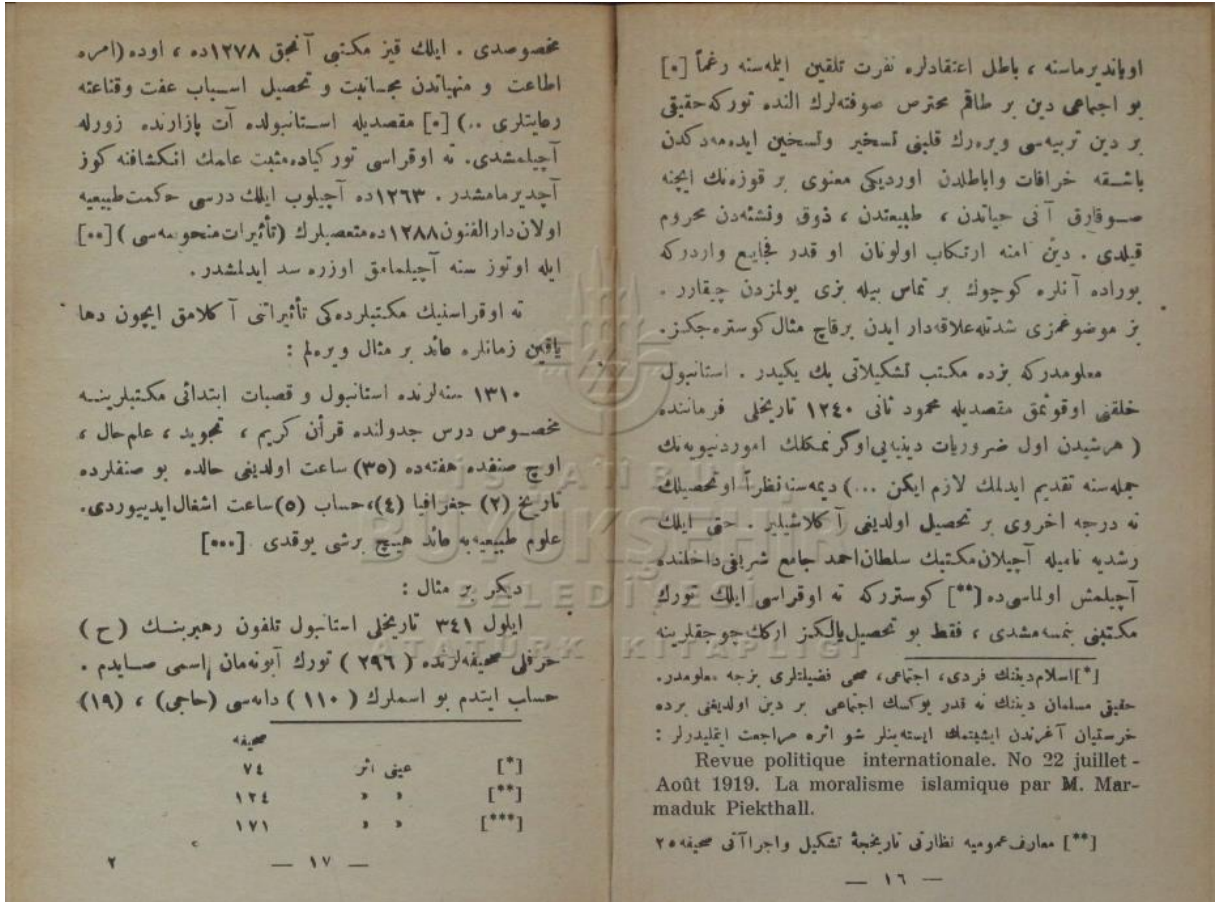 اویاندیرماسنه ، باطل اعتقادلره نفرت تلقین ایله‌سنه رغماً [*]
بو اجتماعی دین بر طاقم محترص صوفته‌لرك النده تورکه حقیقی
بر دین تربیه‌سی ویره‌رك قلبنی تسخیر وتسخین ایده‌مه‌دکدن
باشـقه خرافات واباطلدن اوردیکی معنوی بر قوزه‌نك ایچنه
صـوقارق آنی حیاتدن ، طبیعتدن ، ذوق ونشئه‌دن محروم
قیلدی . دین نامنه ارتکاب اولونان او قدر فجایع واردرکه
بوراده آنلره کوچوك بر تماس بیله بزی یولمزدن چیقارر .
بز موضوعمزی شدتله علاقه‌دار ایدن برقاچ مثال کوستره‌جکز.
معلومدرکه بزده مکتب تشکیلاتی پك یکیدر . استانبول
خلقنی اوقوتمق مقصدیله محمود ثانی ١٢٤٠ تاریخلی فرماننده
( هرشیدن اول ضروریات دینیه‌یی اوکرنمکلك اموردنیویه‌نك
جمله‌سنه تقدیم ایدلمك لازم ایکن ...) دیمه‌سنه نظراً اوتحصیلك
نه درجه اخروی بر تحصیل اولدیغی آکلاشیلیر . حتی ایلك
رشدیه نامیله آچیلان مکتبك سلطان احمد جامع شریفی داخلنده
آچیلمش اولماسی‌ده [**] کوسترركه ته اوقراسی ایلك تورك
مکتبنی بنمسه‌مشدی ، فقط بو تحصیل یالکز ارکك چوجقلرینه
[*] اسلام دیننك فردی، اجتماعی، صحی فضیلتلری بزجه معلومدر.
حقیقی مسلمان دیننك نه قدر یوکسك اجتماعی بر دین اولدیغنی برده
خرستیان آغزندن ایشیتمك ایسته‌ینلر شو اثره مراجعت ایتملیدرلر :
Revue politique internationale. No 22 juillet -
Août 1919. La moralisme islamique par M. Mar-
maduk Piekthall.
[**] معارف عمومیه نظارتی تاریخچهٔ تشکیل واجراآتی صحیفه ٢٥
— ١٦ —
مخصوصدی . ایلك قیز مکتبی آنجق ١٢٧٨ده ، اوده (امره
اطاعت و منهیاتدن مجـانبت و تحصیل اسـباب عفت وقناعته
رعایتلری ..) [*] مقصدیله اسـتانبولده آت پازارنده زورله
آچیلمشدی. ته اوقراسی تورکیاده مثبت علمك انکشافنه کوز
آچدیرمامشدر . ١٢٦٣ده آچیلوب ایلك درسی حکمت طبیعیه
اولان دارالفنون ١٢٨٨ده متعصبلرك (تأثیرات منحوسه‌سی) [**]
ایله اوتوز سنه آچیلمامق اوزره سد ایدلمشدر .
ته اوقراسنیك مکتبلرده‌کی تأثیراتنی آکلامق ایچون دها
یاقین زمانلره عائد بر مثال ویره‌لم :
١٣١٠ سنه‌لرنده استانبول و قصبات ابتدائی مکتبلرینـه
مخصـوص درس جدولنده قرآن کریم ، تجوید ، علم حال ،
اوچ صنفده هفته‌ده (٣٥) ساعت اولدیغی حالده بو صنفلرده
تاریخ (٢) جغرافیا (٤)، حساب (٥) ساعت اشغال ایدییوردی.
علوم طبیعیه‌یه عائد هیـچ برشی یوقدی . [***]
دیکر بر مثال :
ایلول ٣٤١ تاریخلی استانبول تلفون رهبرینـك (ح)
حرفلی صحیفه‌لرنده ( ٢٩٦ ) تورك آبونه‌مان اسمی صـایدم .
حساب ایتدم بو اسملرك ( ١١٠ ) دانه‌سی (حاجی) ، (١٩)
صحیفه
[*] عینی اثر ٧٤
[**] » » ١٢٤
[***] » » ١٧١
— ١٧ —
٢
İSTANBUL
BÜYÜKŞEHİR
BELEDİYESİ
ATATÜRK KİTAPLIĞI